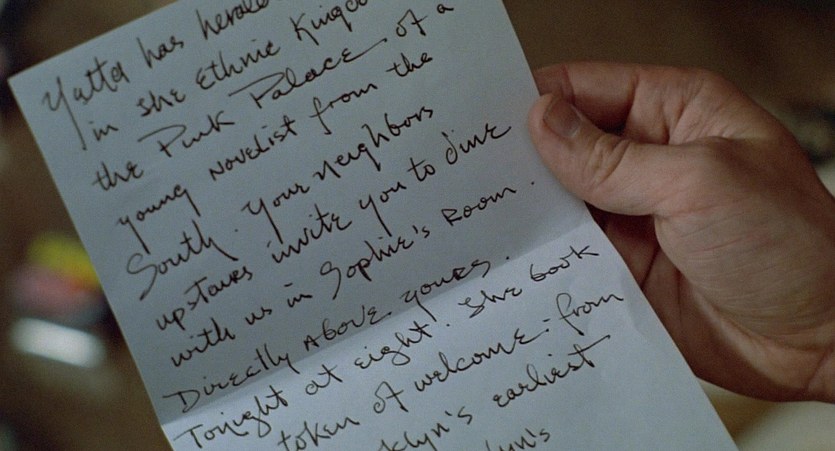 Yetta has
in the Ethnic
the Pink Palace of a
young Novelist from the
South. Your neighbors
upstairs invite you to dine
with us in Sophie's Room.
Directly Above yours.
Tonight at eight. The book
token of welcome: from
earliest